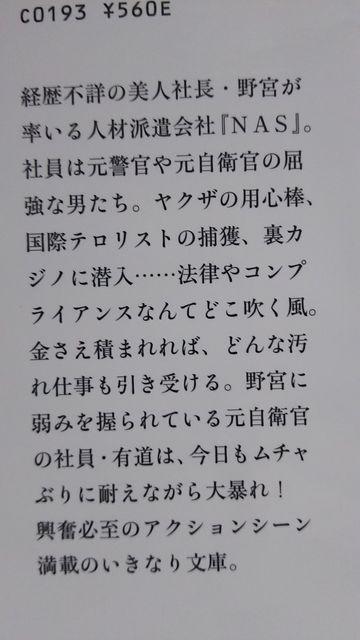 C0193 ¥560E
経歴不詳の美人社長・野宮が
率いる人材派遣会社『NAS』。
社員は元警官や元自衛官の屈
強な男たち。ヤクザの用心棒、
国際テロリストの捕獲、裏カ
ジノに潜入……法律やコンプ
ライアンスなんてどこ吹く風。
金さえ積まれれば、どんな汚
れ仕事も引き受ける。野宮に
弱みを握られている元自衛官
の社員・有道は、今日もムチャ
ぶりに耐えながら大暴れ!
興奮必至のアクションシーン
満載のいきなり文庫。